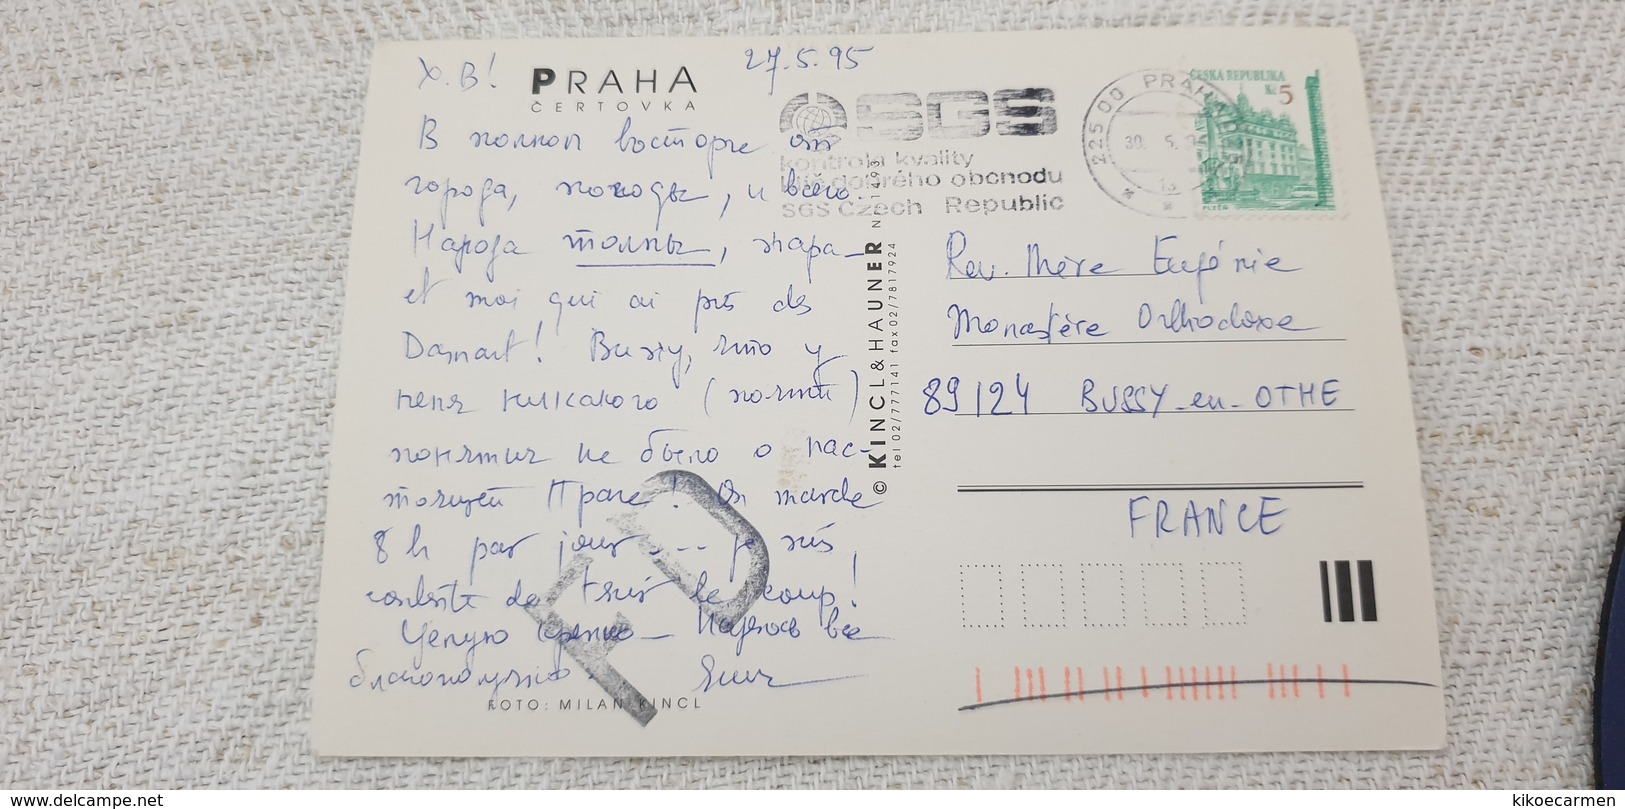 Х.В!
PRAHA
ČERTOVKA
27.5.95
В полном восторге от
города, погоды, и всего.
Народа толпы, жара –
et moi qui ai pris des
Damart! Вижу, что у
меня никакого (почти)
понятия не было о нас-
тоящей Праге! On marche
8 h par jour, ... je suis
de le coup!
Целую крепко – Надеюсь все
благополучно.
FOTO: MILAN KINCL
© KINCL & HAUNER
tel 02/7777141 fax 02/7817924
SGS
kontrola kvality
klíč dobrého obchodu
SGS Czech Republic
225 00 PRAHA
30. 5.
ČESKA REPUBLIKA
Kč 5
PLZEŇ
Rev. Mère Eugénie
Monastère Orthodoxe
89124 BUSSY-en-OTHE
FRANCE
kikoecarmen
delcampe.net